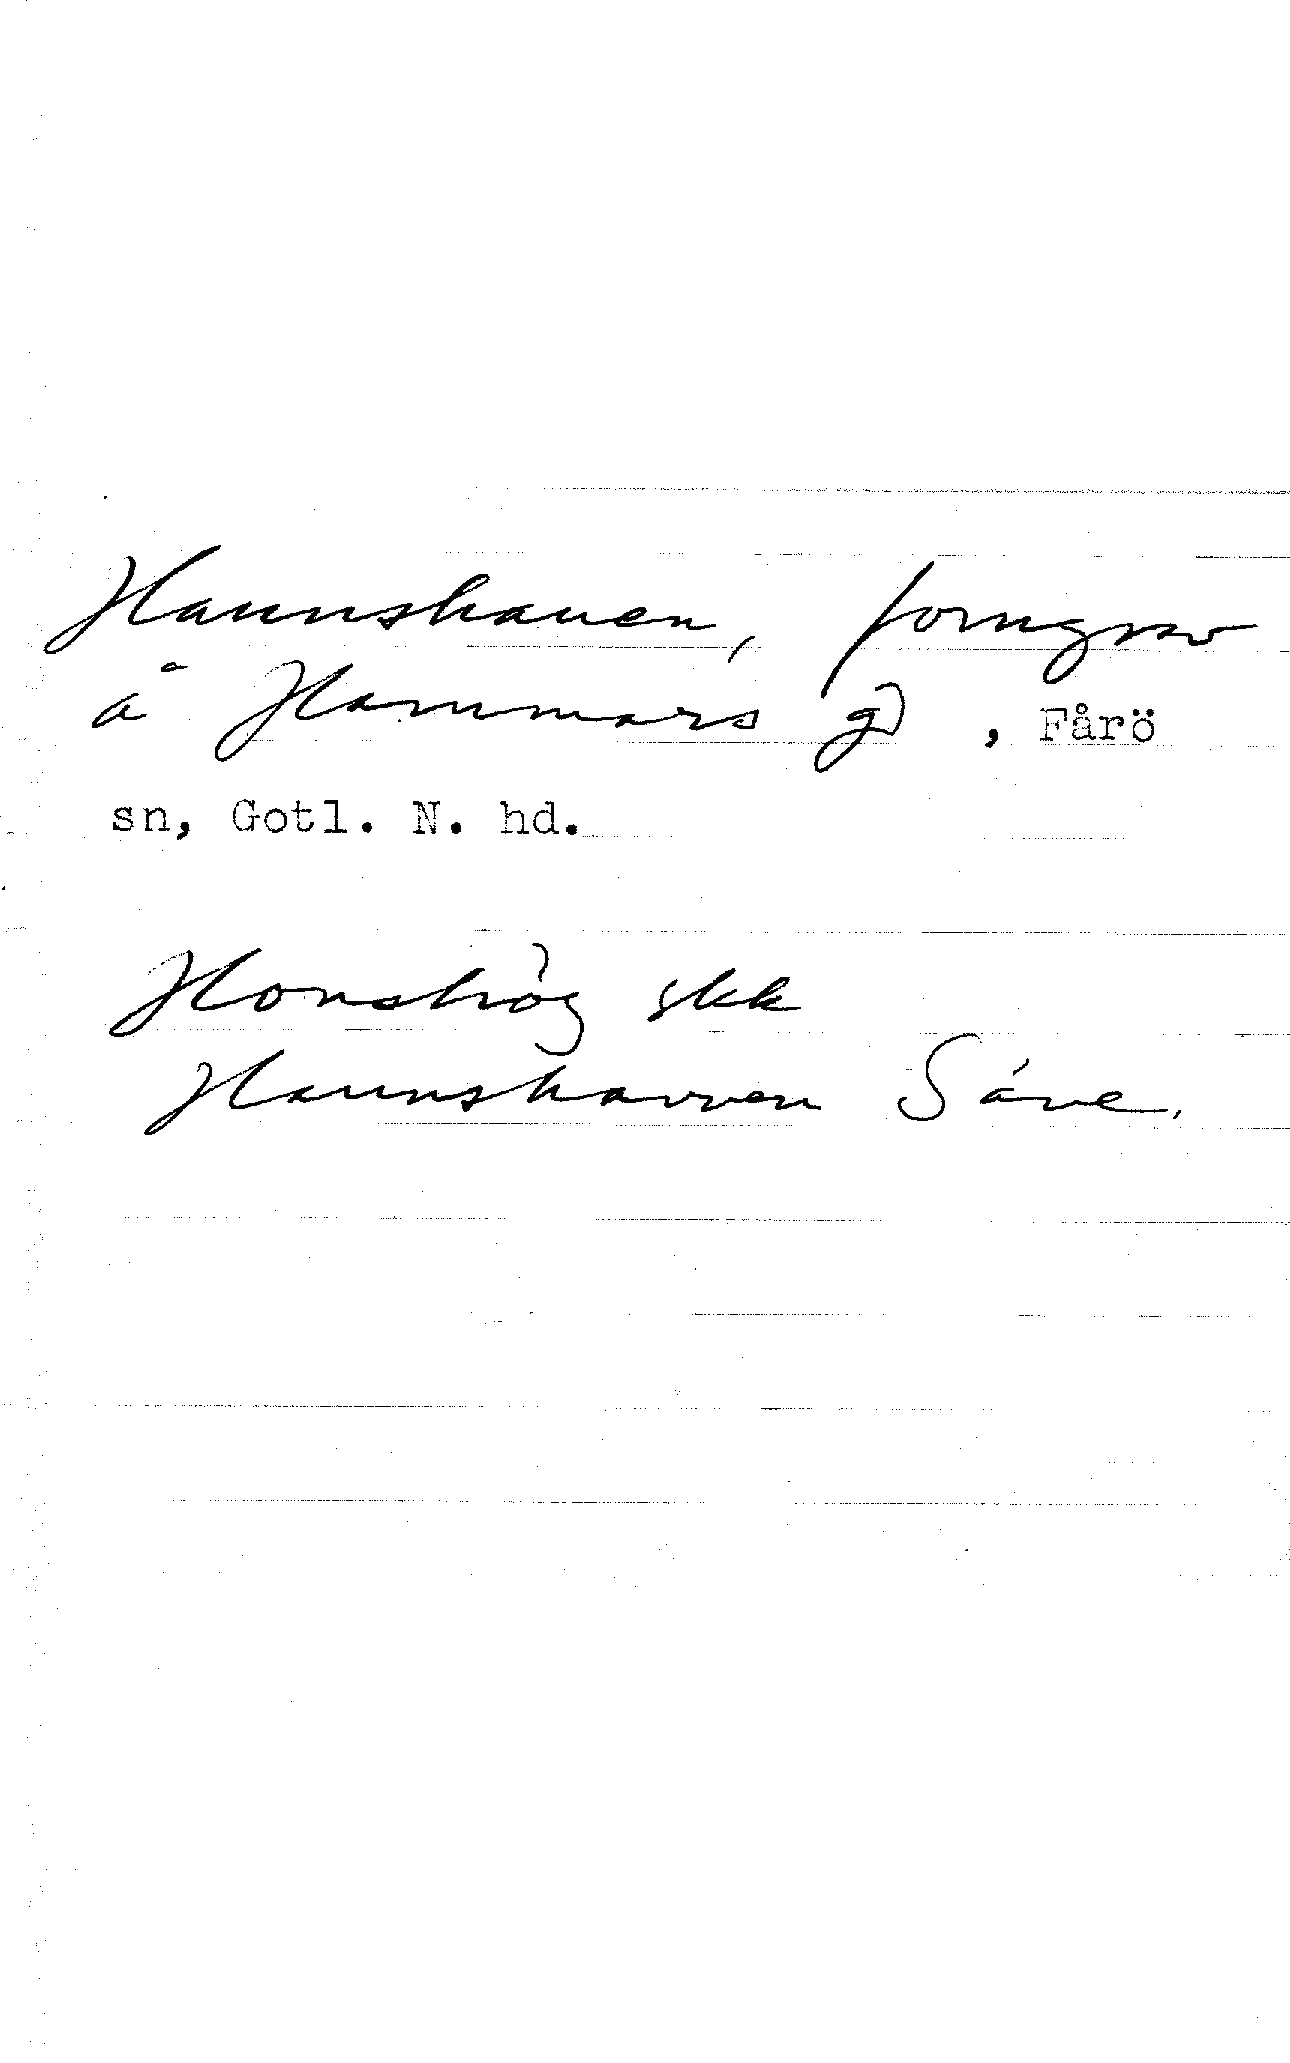 Haunshauen, forngrav
å Hammars gd, Fårö
sn, Gotl. N. hd.
Honshög skk
Haunshavven Säve.